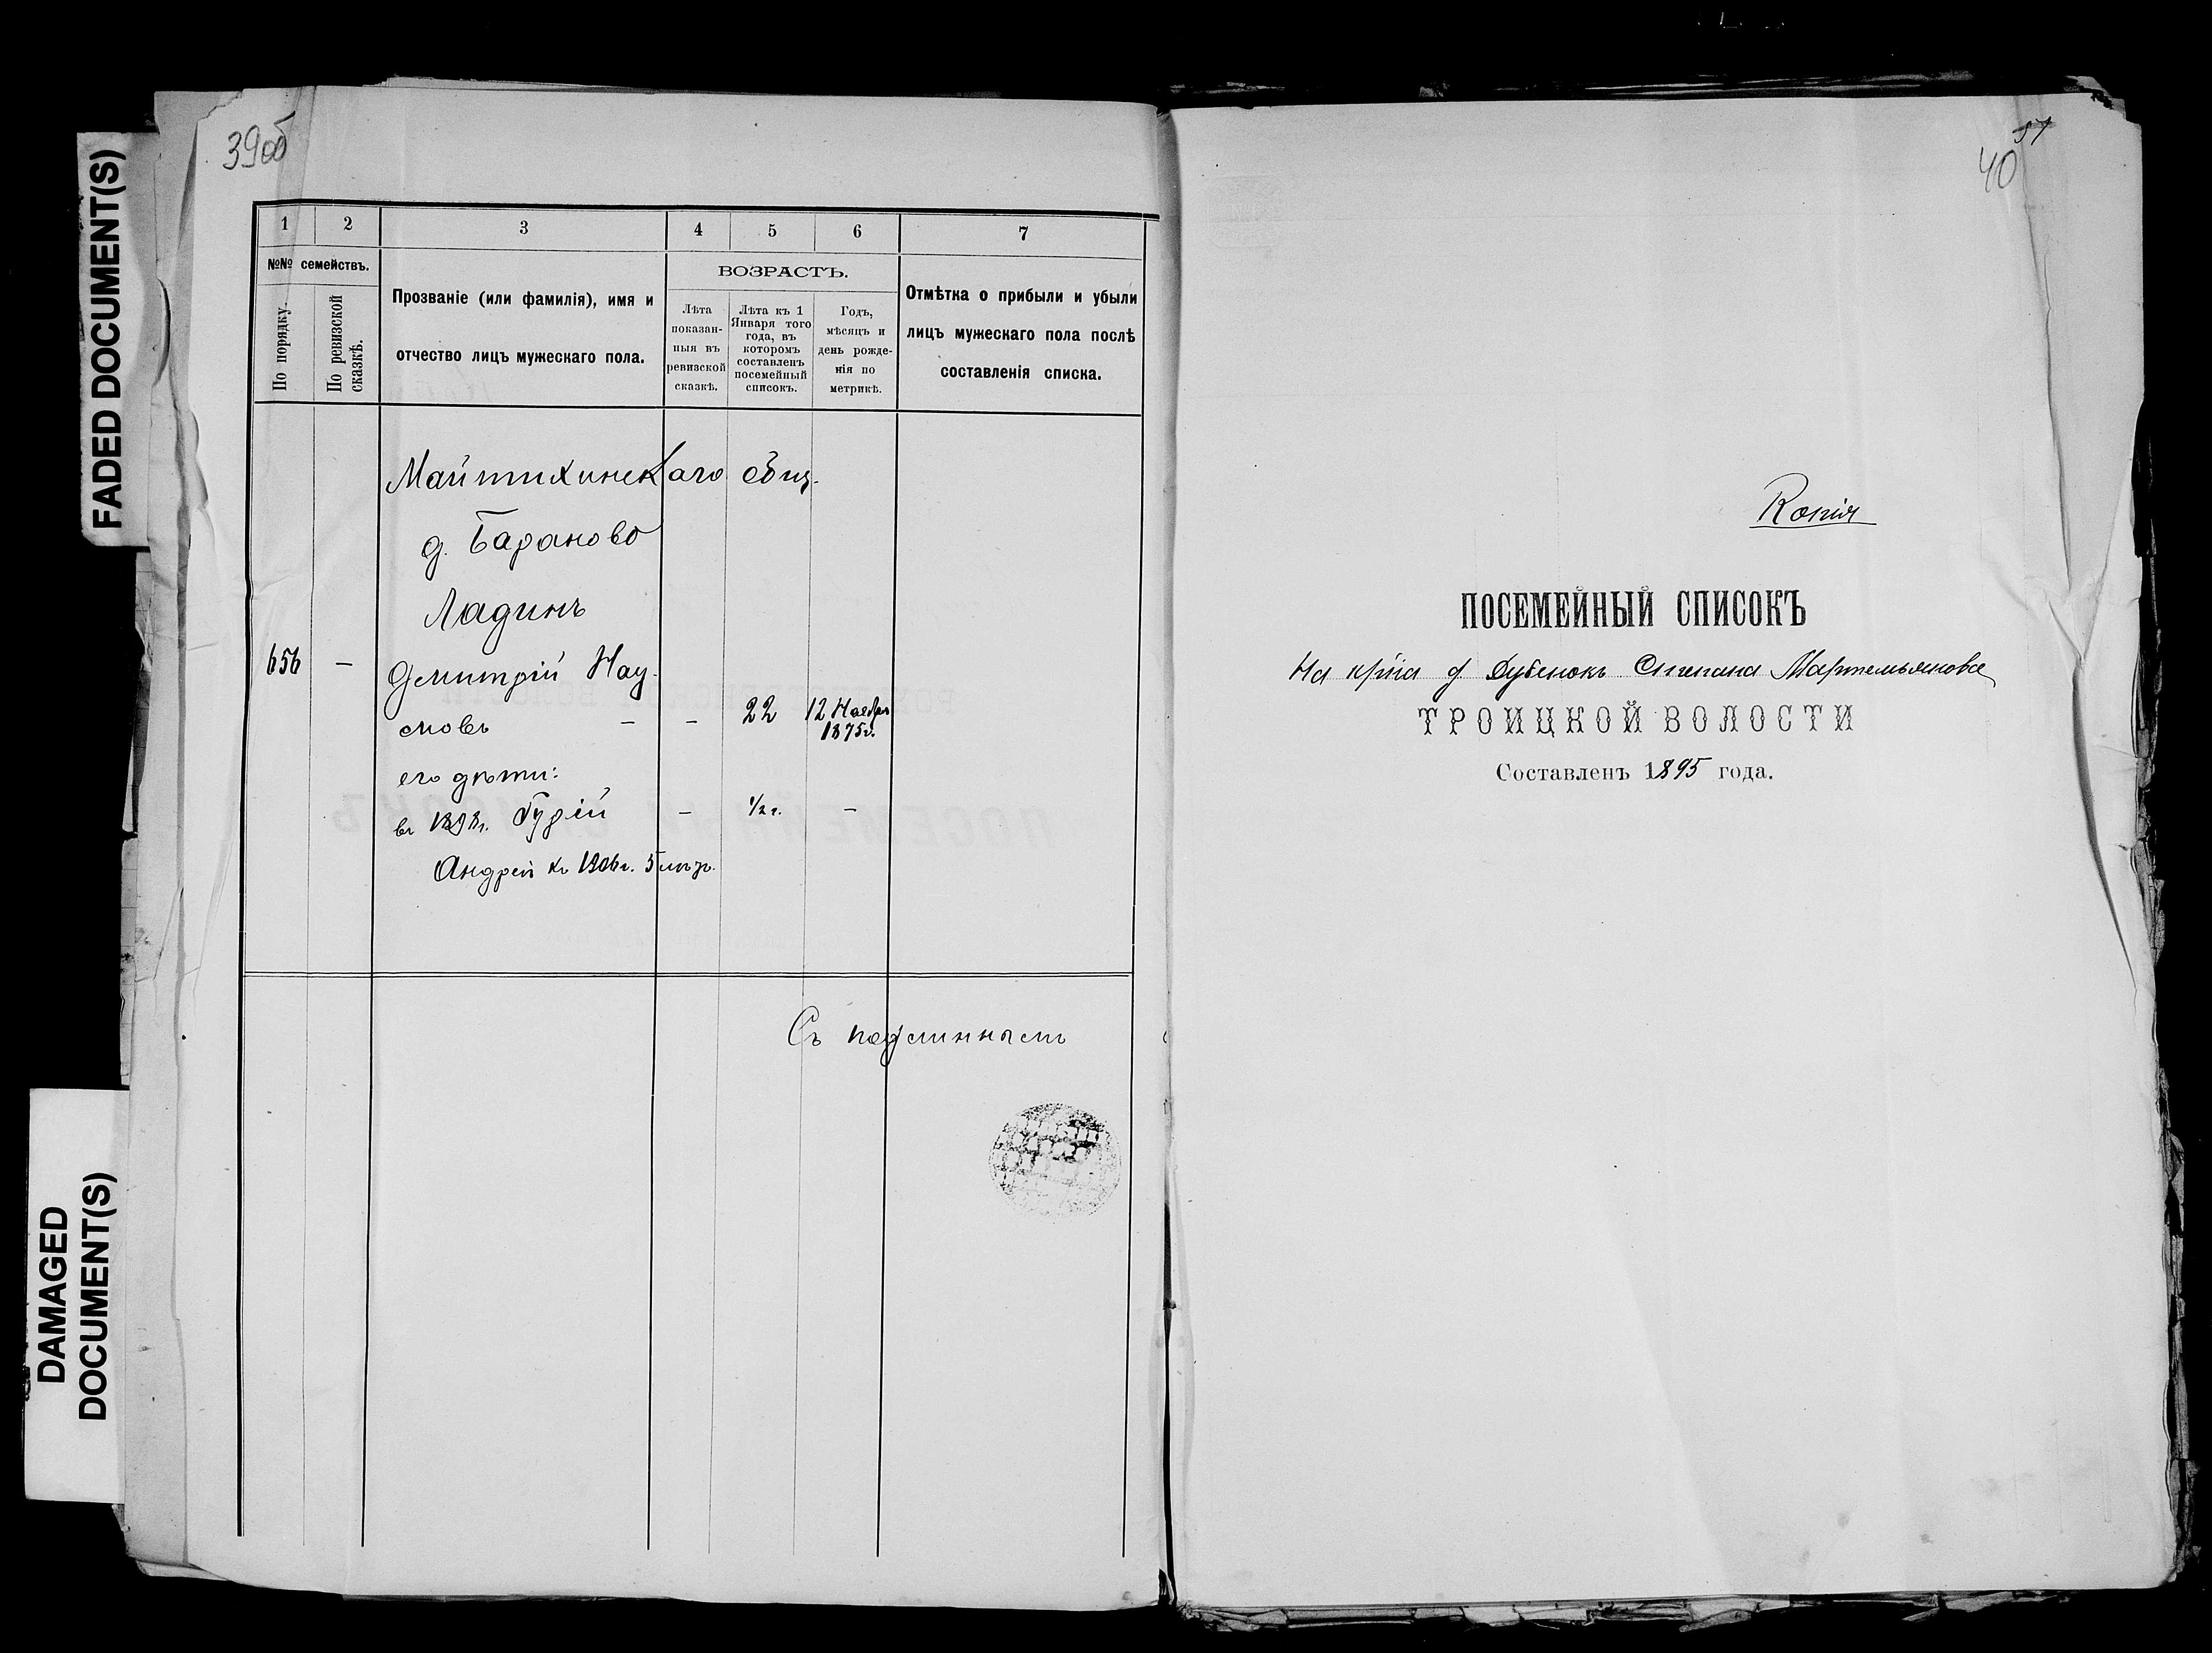 FADED DOCUMENT(S)
DAMAGED
DOCUMENT(S)
39об
1 2 3 4 5 6 7
№№ семействъ.
По порядку.
По ревизской
сказкѣ.
Прозваніе (или фамилія), имя и
отчество лицъ мужескаго пола.
ВОЗРАСТЪ.
Лѣта
показан-
ныя въ
ревизской
сказкѣ.
Лѣта къ 1
Января того
года, въ
которомъ
составленъ
посемейный
списокъ.
Годъ,
мѣсяцъ и
день рожде-
нія по
метрикѣ.
Отмѣтка о прибыли и убыли
лицъ мужескаго пола послѣ
составленія списка.
Майтихинскаго общ.
д. Бараново
Ладинъ
656 — Дмитрій Нау-
мовъ — — 22 12 Ноября
1875г.
его дѣти:
въ 1898г. Гурій — 1/2 г. —
Андрей къ 1906г. 5
Съ подлиннымъ
57
40
Копія
ПОСЕМЕЙНЫЙ СПИСОКЪ
На кр-на д. Дубенокъ Степана Мартемьянова
ТРОИЦКОЙ ВОЛОСТИ
Составленъ 1895 года.